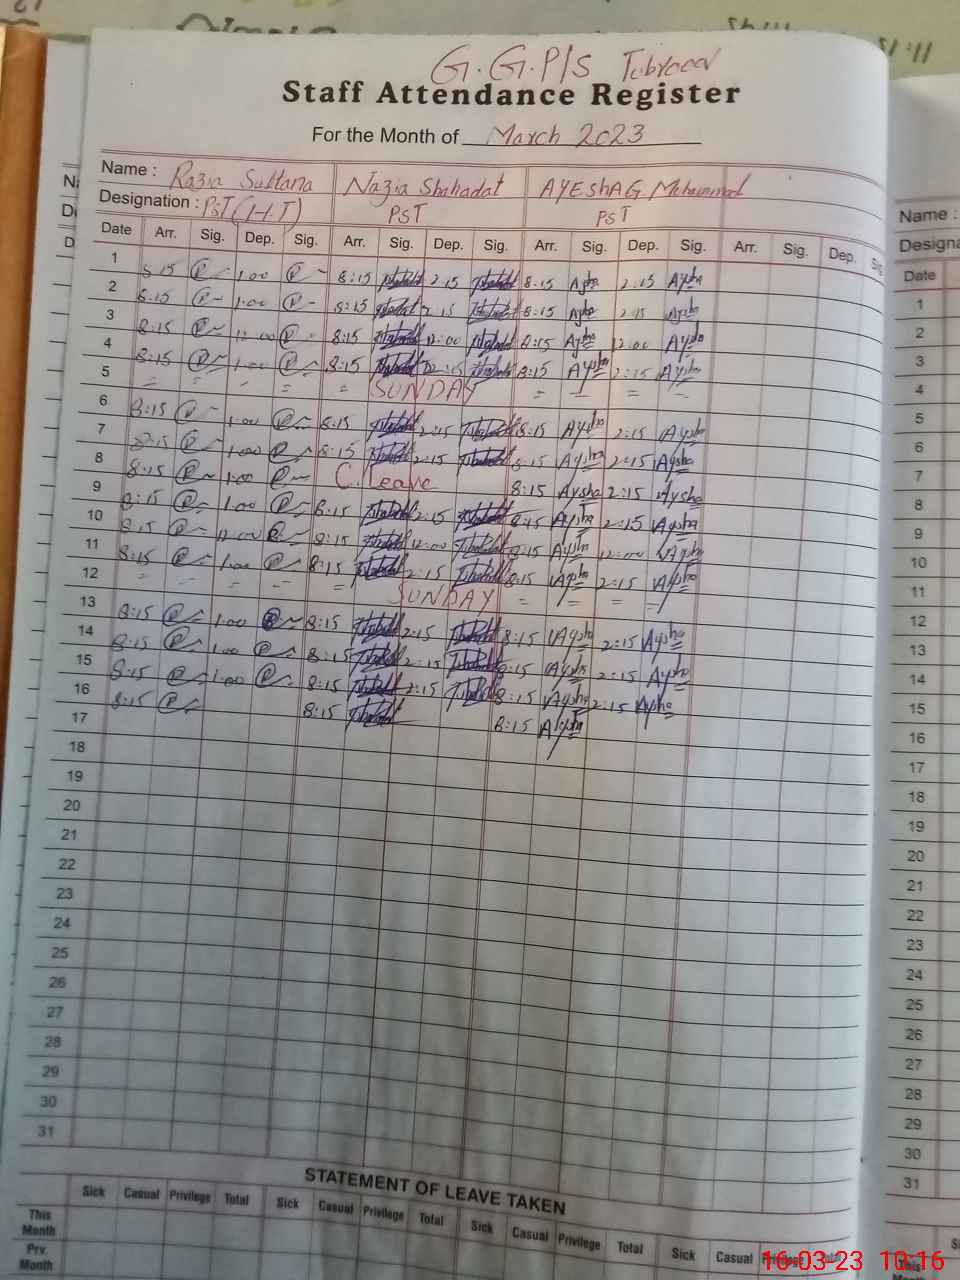 G.G.P/S
Staff Attendance Register
For the Month of March 2023
Name : Razia Sultana Nazia Shahadat AYEshA G. Mohammad
Designation : PST (I-I.T) PST PST
Date Arr. Sig. Dep. Sig. Arr. Sig. Dep. Sig. Arr. Sig. Dep. Sig. Arr. Sig. Dep. Sig
1 8:15 1:00 8:15 2:15 8:15 Aysha 2:15 Aysha
2 8:15 1:00 8:15 2:15 8:15 Aysha 2:15 Aysha
3 8:15 12:00 8:15 12:00 8:15 Aysha 12:00 Aysha
4 8:15 1:00 8:15 2:15 8:15 Aysha 2:15 Aysha
5 = = = = = SUNDAY = = = =
6 8:15 1:00 8:15 2:15 8:15 Aysha 2:15 Aysha
7 8:15 1:00 8:15 2:15 8:15 Aysha 2:15 Aysha
8 8:15 1:00 C. Leave 8:15 Aysha 2:15 Aysha
9 8:15 1:00 8:15 2:15 8:15 Aysha 2:15 Aysha
10 8:15 12:00 8:15 12:00 8:15 Aysha 12:00 Aysha
11 8:15 1:00 8:15 2:15 8:15 Aysha 2:15 Aysha
12 = = = = = SUNDAY = = = =
13 8:15 1:00 8:15 2:15 8:15 Aysha 2:15 Aysha
14 8:15 1:00 8:15 2:15 8:15 Aysha 2:15 Aysha
15 8:15 1:00 8:15 2:15 8:15 Aysha 2:15 Aysha
16 8:15 8:15 8:15 Aysha
17
18
19
20
21
22
23
24
25
26
27
28
29
30
31
STATEMENT OF LEAVE TAKEN
Sick Casual Privilege Total Sick Casual Privilege Total Sick Casual Privilege Total Sick Casual Privilege Total
This Month
Prv. Month
Name :
Designa
Date
1
2
3
4
5
6
7
8
9
10
11
12
13
14
15
16
17
18
19
20
21
22
23
24
25
26
27
28
29
30
31
This
16-03-23 10:16